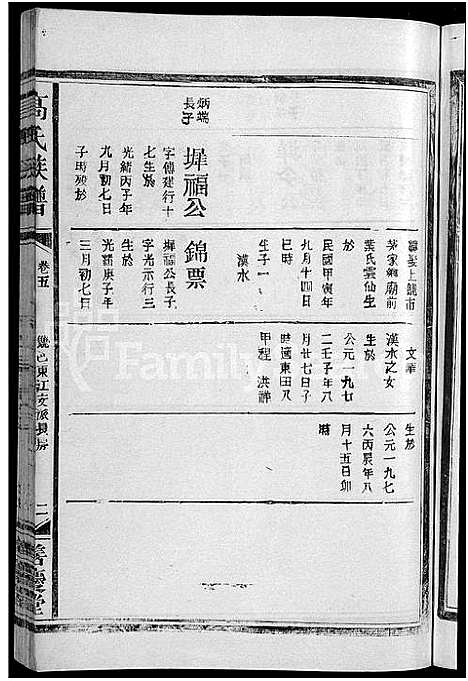 高氏族譜
卷五
幾邑東江支派長房
二
善慶堂
炳端
長子
墀福公
字傳建行十
七生於
光緒丙子年
九月初七日
子時歿於
錦票
墀福公長子
字光示行三
生於
光緒庚子年
三月初七日
上饒市
茅家嶺廟前
葉氏雲仙生
於
民國甲寅年
九月十四日
巳時
生子一
漢水
文華
漢水之女
生於
公元一九七
二壬子年八
月廿七日子
時適東田八
甲程 洪祥
生於
公元一九七
六丙辰年八
月十五日卯
時